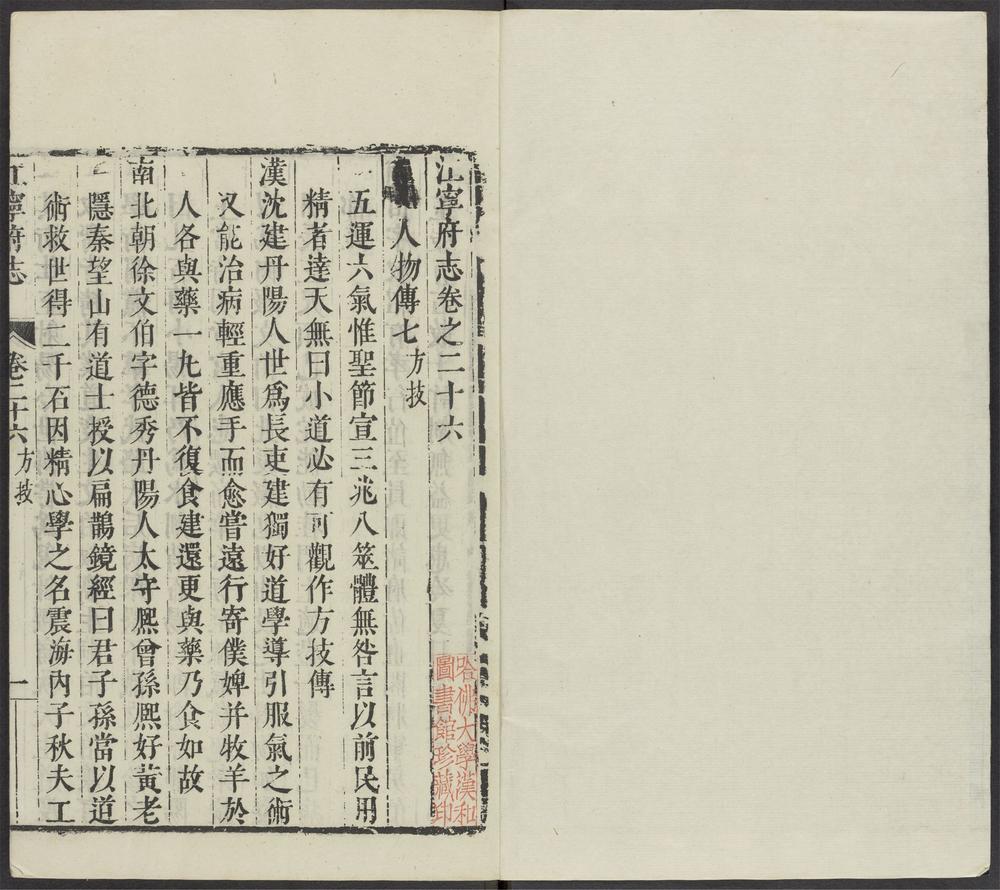 江寧府志卷之二十六
人物傳七方技
五運六氣惟聖節宣三兆八筮體無咎言以前民用
精者達天無曰小道必有可觀作方技傳
漢沈建丹陽人世爲長吏建獨好道學導引服氣之術
又能治病輕重應手而愈嘗遠行寄僕婢并牧羊於
人各與藥一九皆不復食建還更與藥乃食如故
南北朝徐文伯字德秀丹陽人太守熈曾孫熈好黃老
隱秦望山有道士授以扁鵲鏡經曰君子孫當以道
術救世得二千石因精心學之名震海內子秋夫工
江寧府志
卷二十六方技
一
哈佛大學漢和
圖書館珍藏印